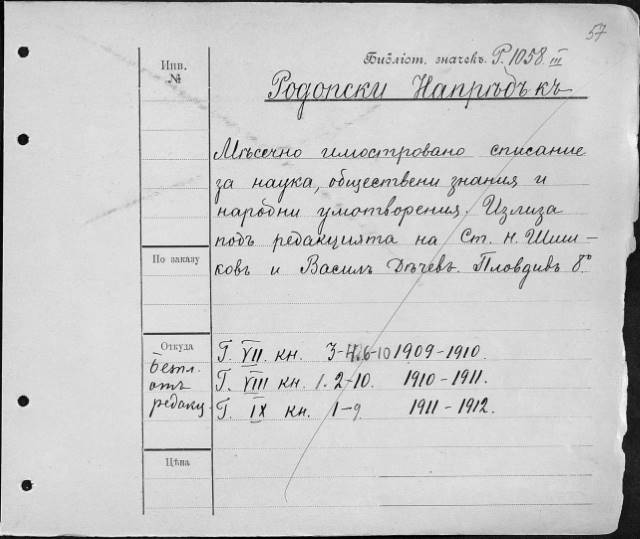 57
Библіот. значекъ. Р. 1058. III
Инв.
№
Родопски Напрѣдъкъ
Мѣсечно илюстровано списание
за наука, обществени знания и
народни умотворения. Излиза
подъ редакцията на Ст. Н. Шиш-
ковъ и Василъ Дѣчевъ. Пловдивъ 8°
По заказу
Откуда
безпл.
отъ
редакц.
Г. VII. кн. 3-4, 6-10 1909-1910.
Г. VIII кн. 1. 2-10. 1910-1911.
Г. IX кн. 1-9 1911-1912.
Цѣна